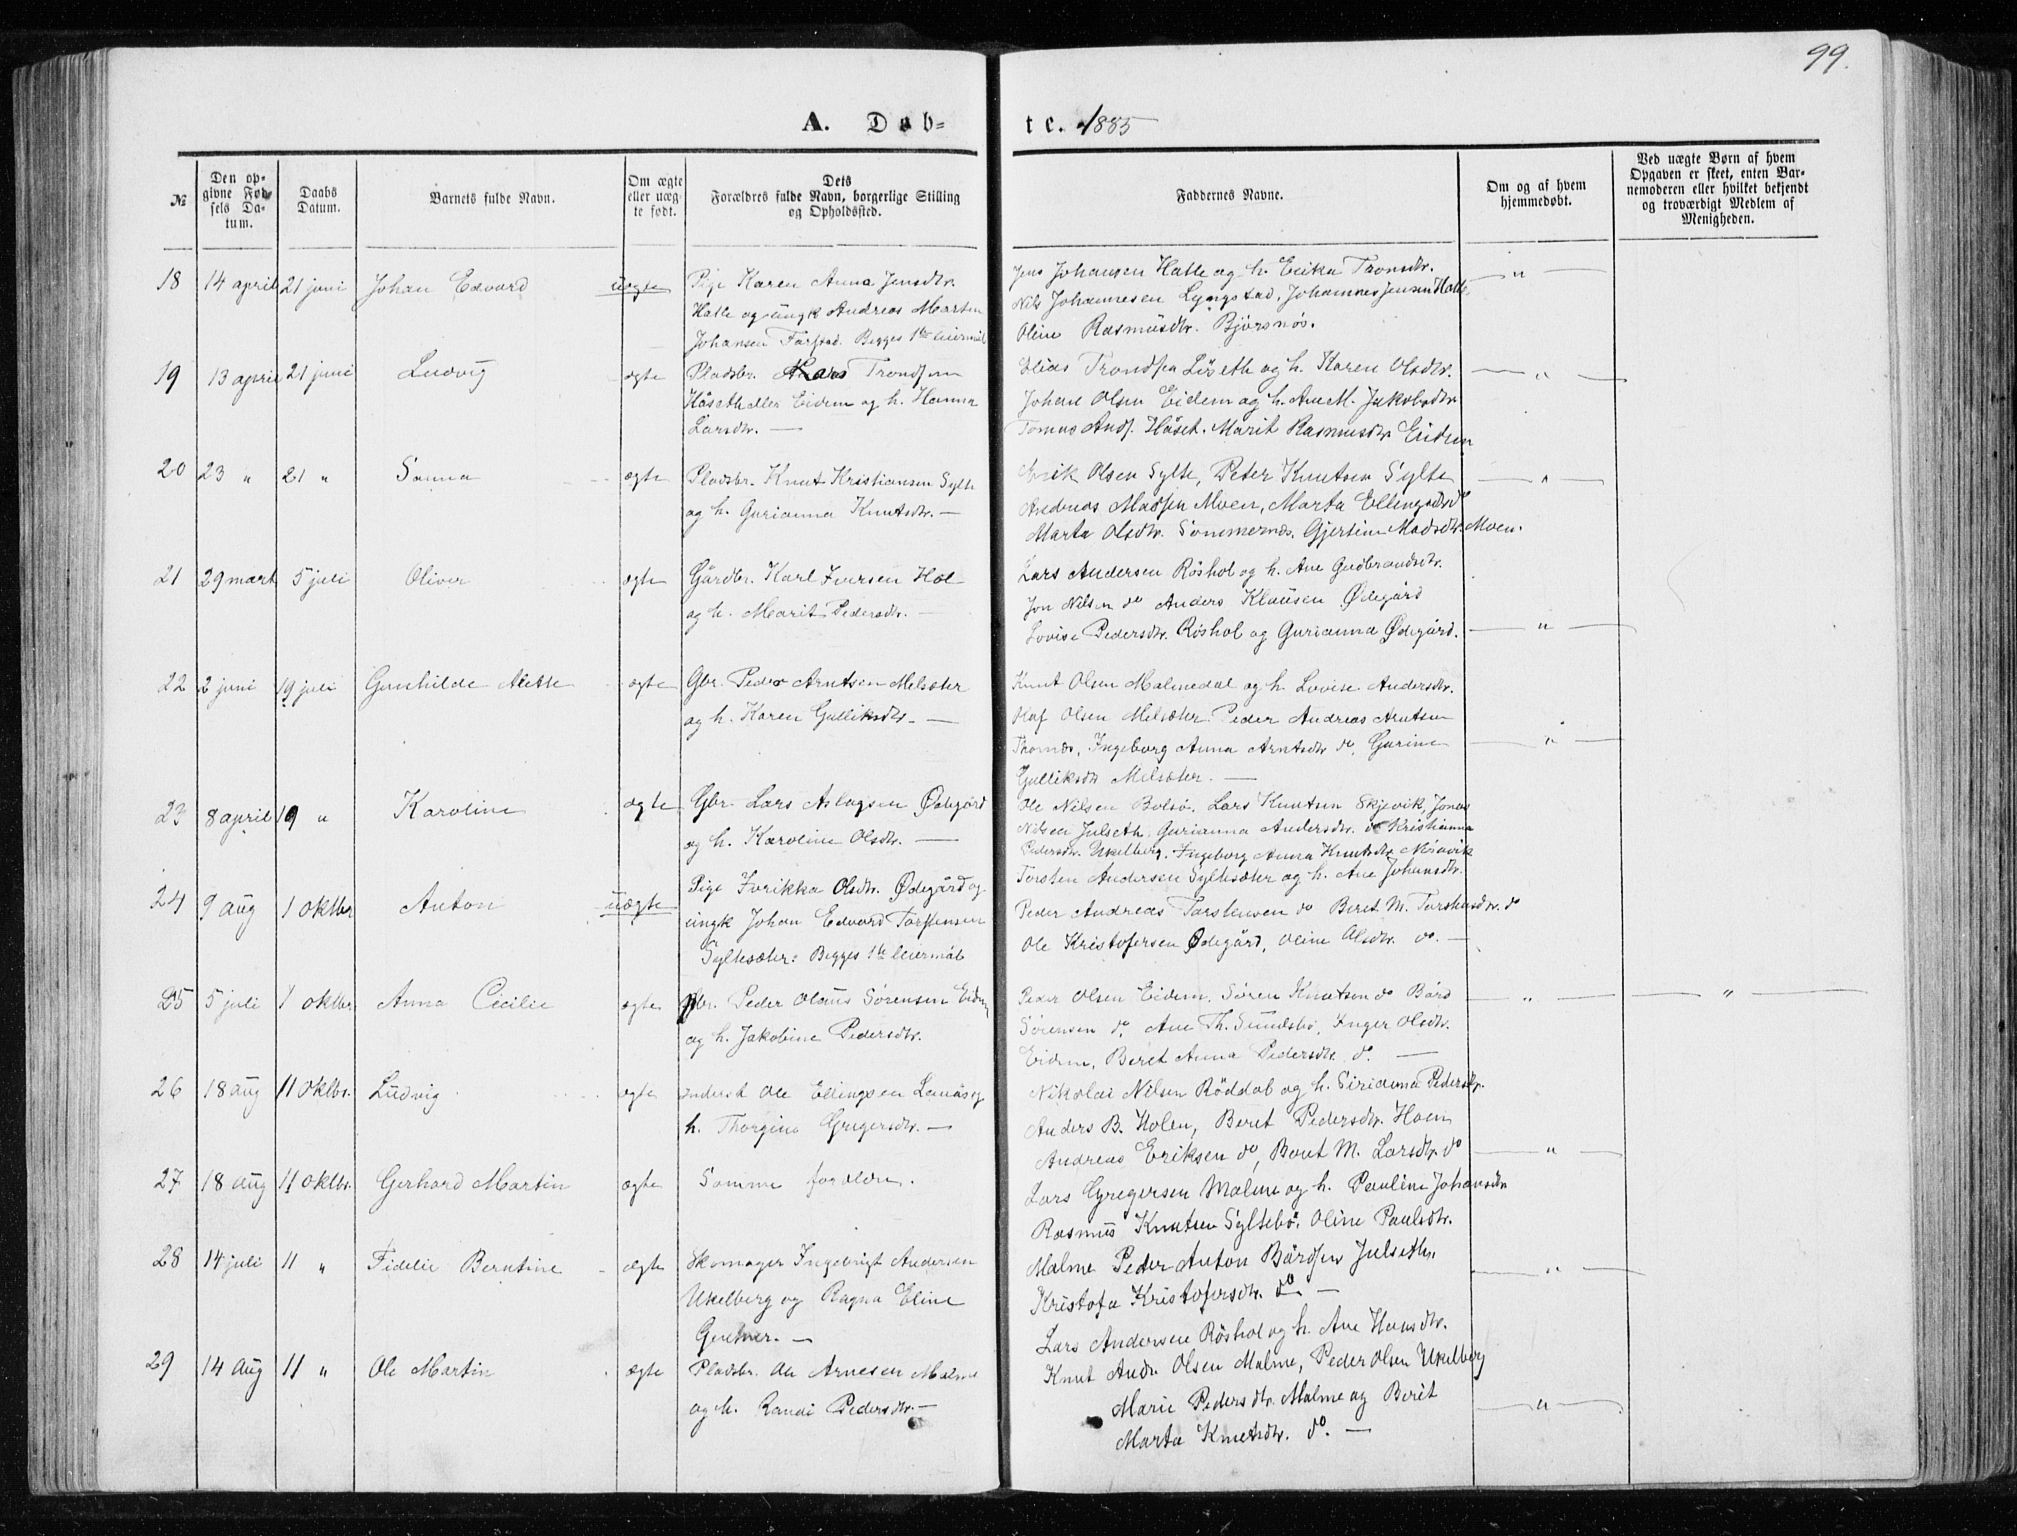 99.
A. Døb-
te. 1885
№
Den op-
givne Fød-
sels Da-
tum.
Daabs
Datum.
Barnets fulde Navn.
Om ægte
eller uæg-
te født.
Dets
Forældres fulde Navn, borgerlige Stilling
og Opholdssted.
Faddernes Navne.
Om og af hvem
hjemmedøbt.
Ved uægte Børn af hvem
Opgaven er skeet, enten Bar-
nemoderen eller hvilket bekjendt
og troværdigt Medlem af
Menigheden.
18 14 april 21 juni Johan Edvard uægte Pige Karen Anna Jensdtr.
Hatle og ungk Andreas Martin
Johansen Farstad. Begges 1ste leiermål
Jens Johansen Hatle og h. Erika Tronsdtr.
Nils Johannesen Lyngstad, Johannes Jensen Hatle,
Oline Rasmusdtr. Bjørsnøs.
19 13 april 21 juni Ludvig ægte Pladsbr. Lars Trondsen
Håseth eller Eidem og h. Hanna
Larsdtr. —
Elias Trondsen Liseth og h. Karen Olsdtr.
Johan Olsen Eidem og h. Ane M. Jakobsdtr.
Tomas Ands. Håset. Marit Rasmusdtr. Eidem
20 23 " 21 " Sanna ægte Pladsbr. Knut Kristiansen Sylte
og h. Gurianna Knutsdtr. —
Erik Olsen Sylte, Peter Knutsen Sylte
Andreas Madsen Moen, Marta Ellingsdtr. do
Marta Olsdtr. Sommernes. Gjertine Madsdtr. Moen.
21 29 mart 5 juli Oliver ægte Gårdbr. Karl Iversen Hol
og h. Marit Pedersdtr. —
Lars Andersen Røshol og h. Ane Gudbrandsdtr.
Jon Nilsen do Anders Klausen Ødegård
Lovise Pedersdtr. Røshol og Gurianna Ødegård.
22 2 juni 19 juli Gunhilde Mette ægte Gbr. Peder Arntsen Melsæter
og h. Karen Gulliksdtr. —
Knut Olsen Malmedal og h. Lovise Andersdtr.
Olaf Olsen Melsæter. Peder Andreas Arntsen
Thornes, Ingeborg Anna Arntsdtr. do, Gurine
Gulliksdtr Melsæter. —
23 8 april 19 " Karoline ægte Gbr. Lars Aslagsen Ødegård
og h. Karoline Olsdtr. —
Ole Nilsen Bolsø. Lars Knutsen Skjevik, Jonas
Nilsen Julseth. Gurianna Andersdtr. do Kristianna
Pedersdtr. Ukelberg. Ingeborg Anna Knutsdtr.
24 9 aug 1 oktbr Anton uægte Pige Fredrikka Olsdtr. Ødegård og
ungk Johan Edvard Torstensen
Syltesæter: Begges 1ste leiermål
Torsten Andersen Syltesæter og h. Ane Johansdtr.
Peder Andreas Torstensen do Beret M. Torstensdtr. do
Ole Kristofersen Ødegård, Oline Olsdtr. do. —
25 5 juli 1 oktbr Anna Cicilie ægte Gbr. Peder Olaus Sørensen Eidem
og h. Jakobine Pedersdtr.
Peder Olsen Eidem. Søren Knutsen do Bård
Sørensen do, Ane Th. Sundsbø, Inger Olsdtr.
Eidem, Beret Anna Pedersdtr. do. —
26 18 aug 11 oktbr. Ludvig ægte Inderst Ole Ellingsen Lanås og
h. Thorgine Gregersdtr. —
Nikolai Nilsen Røddal og h. Sirianna Pedersdtr.
Anders B. Holen, Beret Pedersdtr. Hoem
Andreas Eriksen do, Beret M. Larsdtr. do
27 18 aug 11 oktbr. Gerhard Martin ægte Samme forældre.
Lars Gregersen Malme og h. Pauline Johansdtr
Rasmus Knutsen Syltebø. Oline Paulsdtr.
28 14 juli 11 " Fidelie Berntine ægte Skomager Ingebrigt Andersen
Ukelberg og Ragna Eline
Malme Peder Anton Bårdsen Julseth,
Kristofa Kristofersdtr. do —
Lars Andersen Røshol og h. Ane Hansdtr.
29 14 aug 11 " Ole Martin ægte Pladsbr. Ole Arnesen Malme
og h. Randi Pedersdtr. —
Knut Andr. Olsen Malme, Peder Olsen Ukelberg
Marie Pedersdtr. Malme og Berit
Marta Knutsdtr. do. —